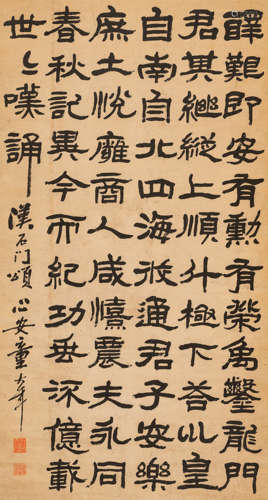 釋艱即安有勳有榮禹鑿龍門
君其繼縱上順斗極下答巛皇
自南自北四海攸通君子安樂
庶士悅雍商人咸憘農夫永同
春秋記異今而紀功垂流億載
世〻嘆誦 漢石門頌 心安童大年